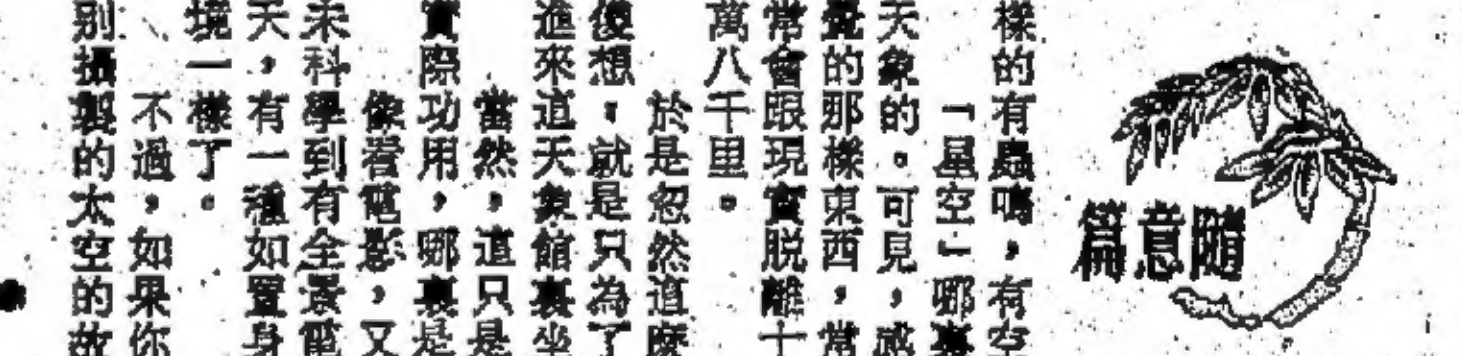 隨意篇
樣的有蟲鳴，有空
「星空」哪裏
天象的。可見，感
覺的那樣東西，常
常會跟現實脱離十
萬八千里。
於是忽然這麼
傻想，就是只為了
進來這天象館裏坐
當然，這只是
實際功用，哪裏是
像看電影，又
未科學到有全景電
天，有一種如置身
境一樣了。
不過，如果你
、
别攝製的太空的故